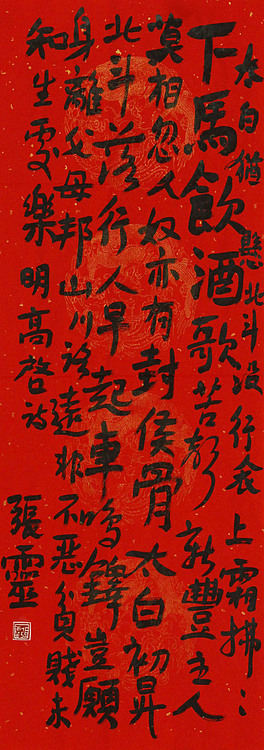 太白猶懸北斗没行衣上霜拂〻
下馬飲酒歌苦聲新豐主人
莫相忽人奴亦有封侯骨太白初昇
北斗落行人早起車鳴鐸豈願
身離父母邦山川路遠非不惡貧賤未
知生處樂明高啓詩
張靈